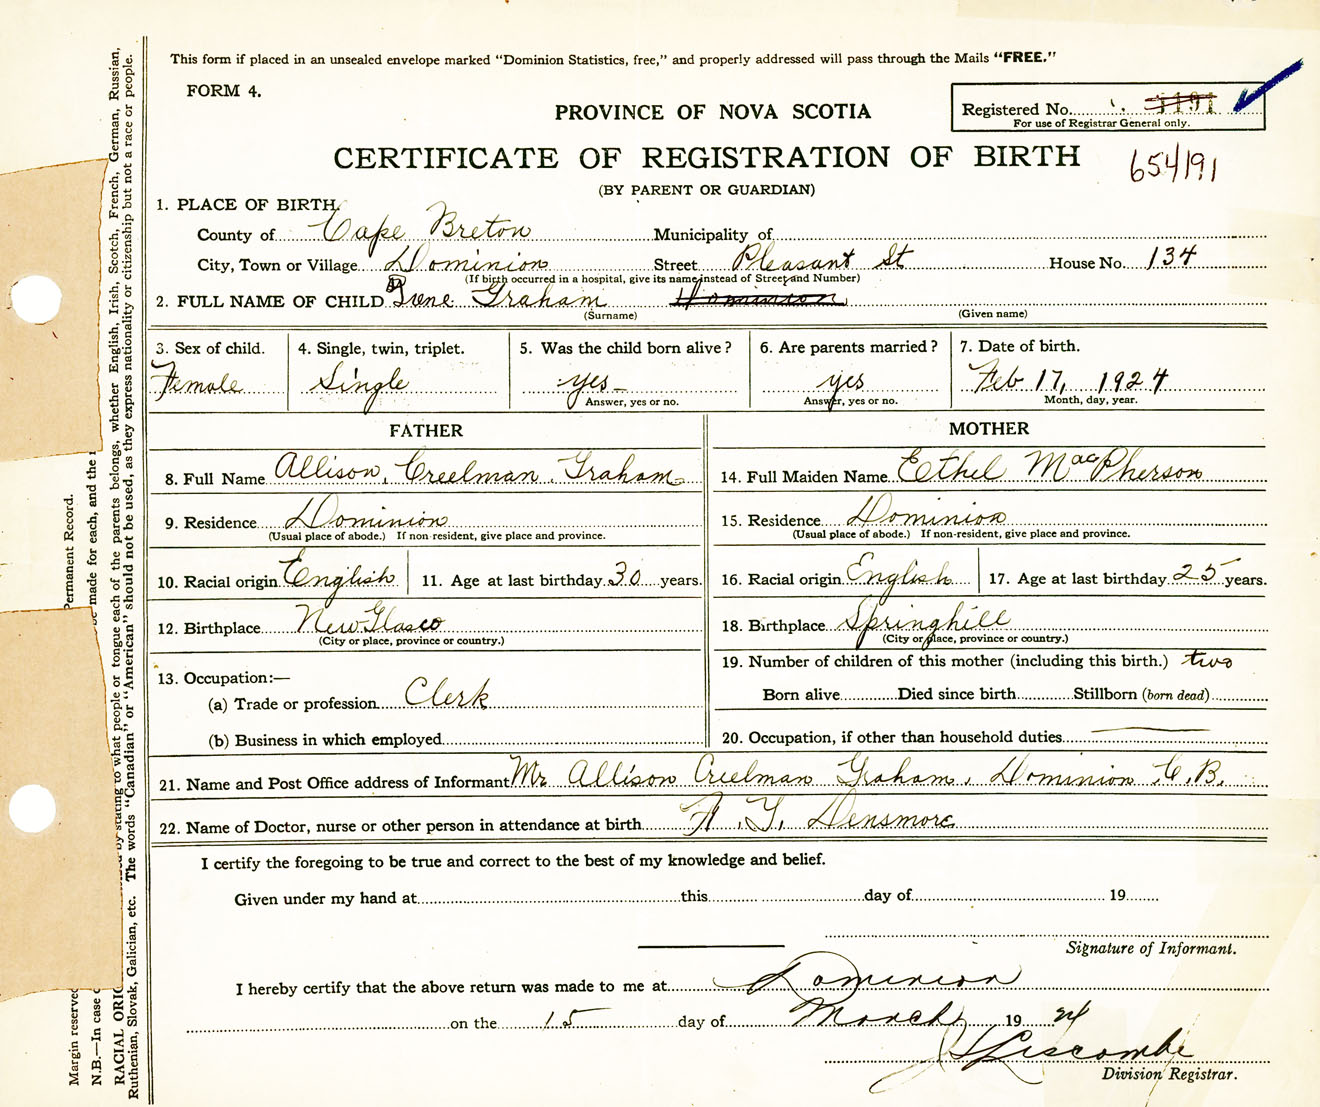 This form if placed in an unsealed envelope marked “Dominion Statistics, free,” and properly addressed will pass through the Mails “FREE.”
FORM 4.
PROVINCE OF NOVA SCOTIA
Registered No. 1191
For use of Registrar General only.
CERTIFICATE OF REGISTRATION OF BIRTH
654191
(BY PARENT OR GUARDIAN)
1. PLACE OF BIRTH.
County of Cape Breton Municipality of
City, Town or Village Dominion Street Pleasant St House No. 134
(If birth occurred in a hospital, give its name instead of Street and Number)
2. FULL NAME OF CHILD Irene Graham Dominion
(Surname) (Given name)
3. Sex of child. 4. Single, twin, triplet. 5. Was the child born alive? 6. Are parents married? 7. Date of birth.
Female Single yes yes Feb 17, 1924
Answer, yes or no. Answer, yes or no. Month, day, year.
FATHER MOTHER
8. Full Name Allison Creelman Graham 14. Full Maiden Name Ethel MacPherson
9. Residence Dominion 15. Residence Dominion
(Usual place of abode.) If non-resident, give place and province. (Usual place of abode.) If non-resident, give place and province.
10. Racial origin English 11. Age at last birthday 30 years. 16. Racial origin English 17. Age at last birthday 25 years.
12. Birthplace New Glasco 18. Birthplace Springhill
(City or place, province or country.) (City or place, province or country.)
13. Occupation:— 19. Number of children of this mother (including this birth.) two
(a) Trade or profession Clerk Born alive Died since birth Stillborn (born dead)
(b) Business in which employed 20. Occupation, if other than household duties
21. Name and Post Office address of Informant Mr Allison Creelman Graham, Dominion C.B.
22. Name of Doctor, nurse or other person in attendance at birth Densmore
I certify the foregoing to be true and correct to the best of my knowledge and belief.
Given under my hand at this day of 19
Signature of Informant.
I hereby certify that the above return was made to me at Dominion
on the 15 day of March 19 24
Liscombe
Division Registrar.
Margin reserved Permanent Record.
N.B.—In case be made for each, and the
RACIAL ORIG by stating to what people or tongue each of the parents belongs, whether English, Irish, Scotch, French, German, Russian,
Ruthenian, Slovak, Galician, etc. The words “Canadian” or “American” should not be used, as they express nationality or citizenship but not a race or people.